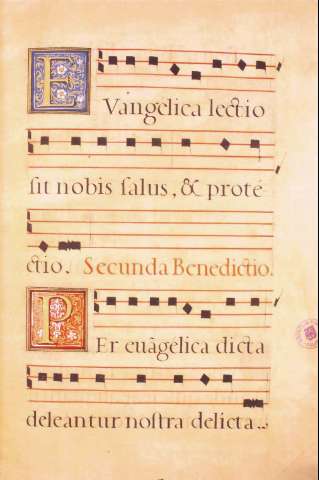 EVangelica lectio
sit nobis salus, & proté
ctio. Secunda Benedictio.
PEr euãgelica dicta
deleantur nostra delicta..